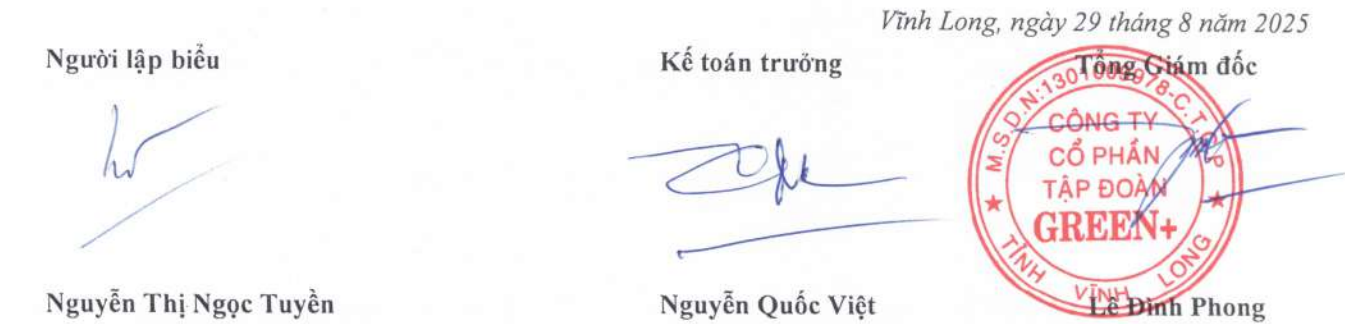 Vĩnh Long, ngày 29 tháng 8 năm 2025
Người lập biểu
Kế toán trưởng
Tổng Giám đốc
CÔNG TY
CỔ PHẦN
TẬP ĐOÀN
GREEN+
TỈNH VĨNH LONG
Nguyễn Thị Ngọc Tuyền
Nguyễn Quốc Việt
Lê Đình Phong